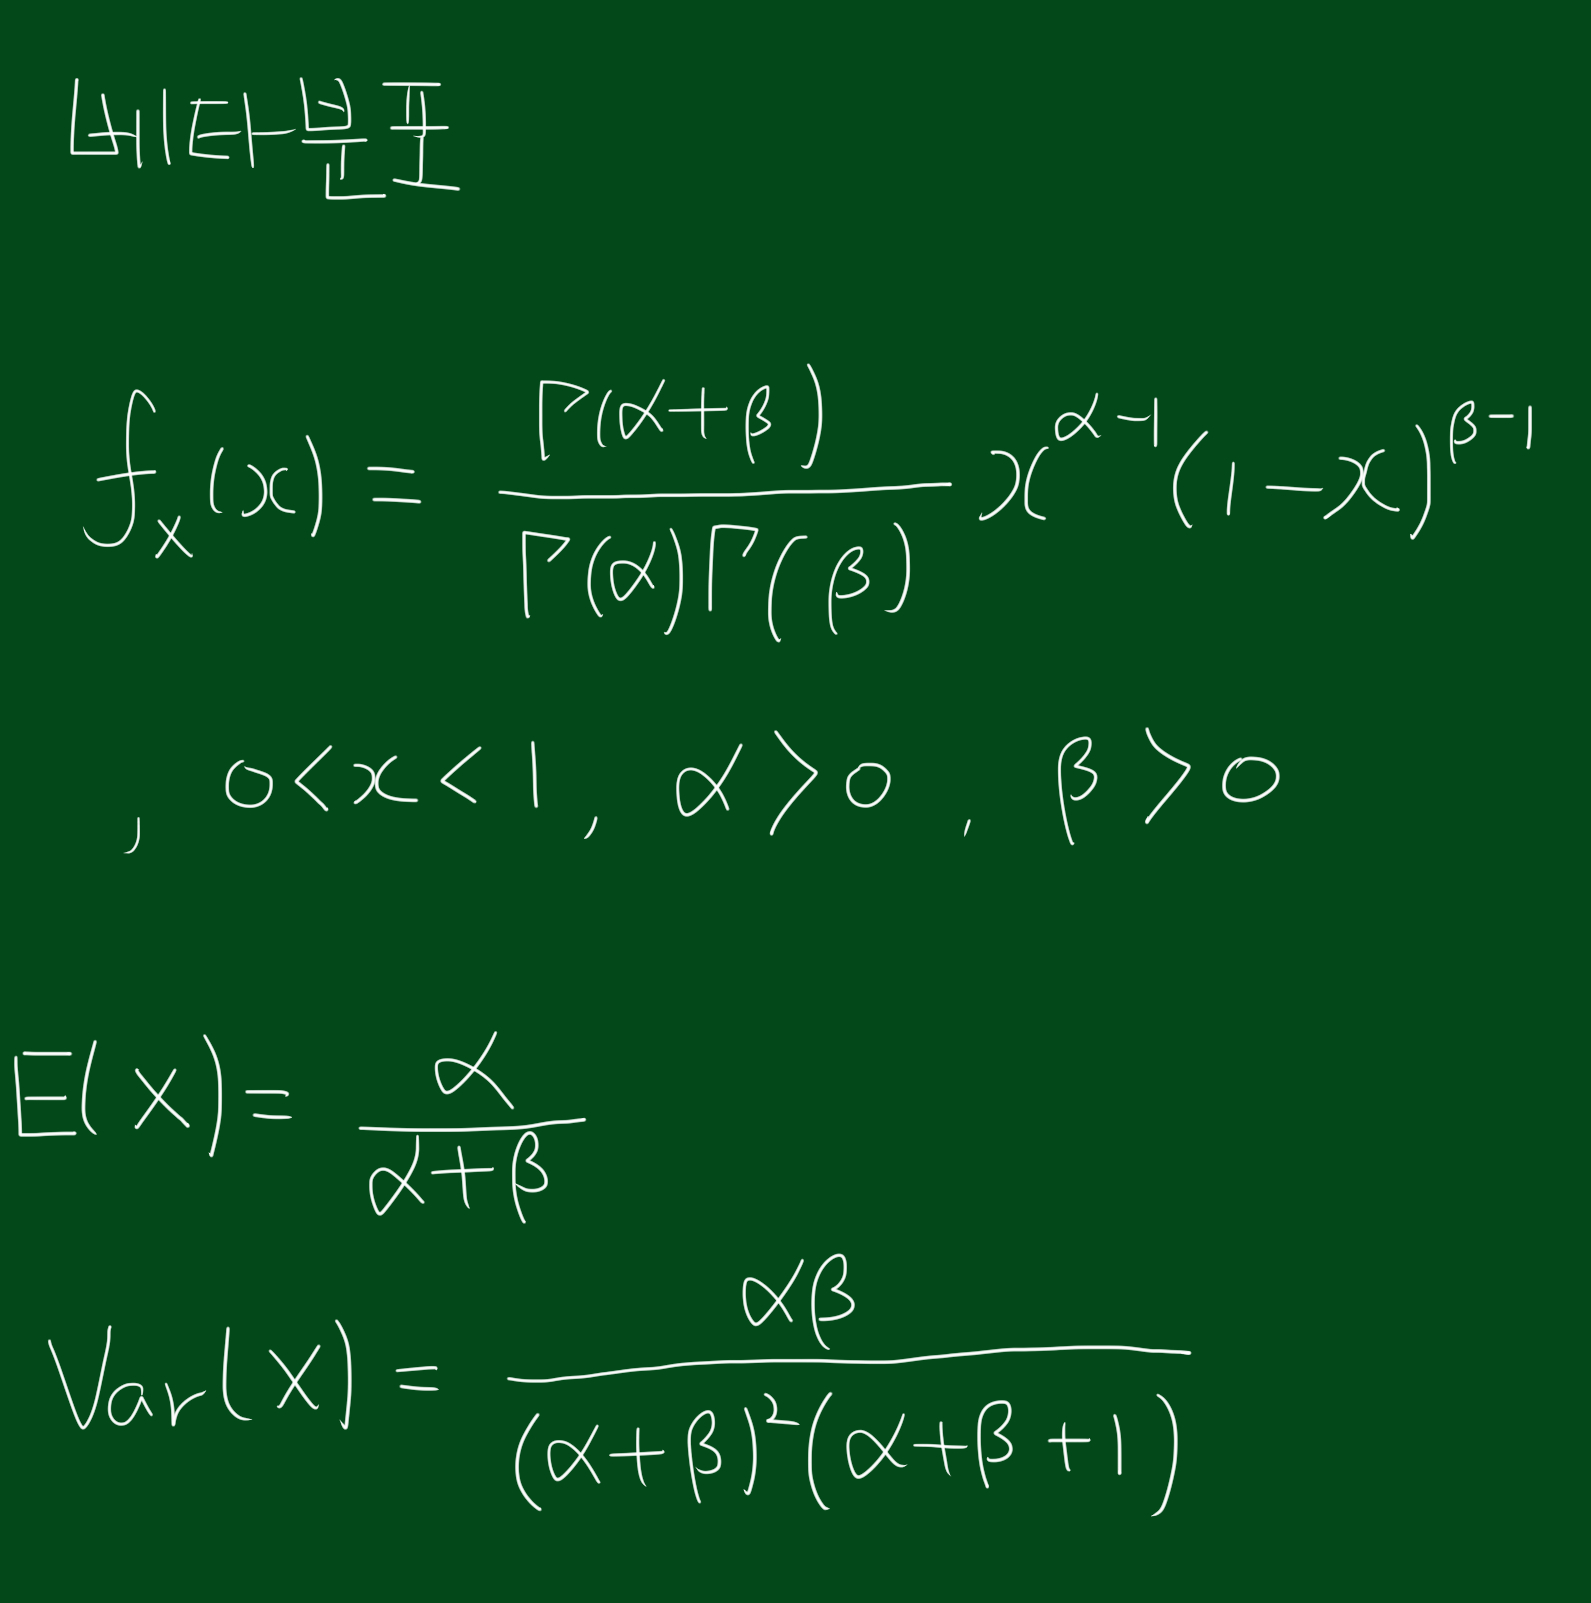 베타분포
f_X(x) = \frac{Γ(α+β)}{Γ(α)Γ(β)} x^{α-1}(1-x)^{β-1}
, 0<x<1, α>0, β>0
E(X) = \frac{α}{α+β}
Var(X) = \frac{αβ}{(α+β)^2(α+β+1)}